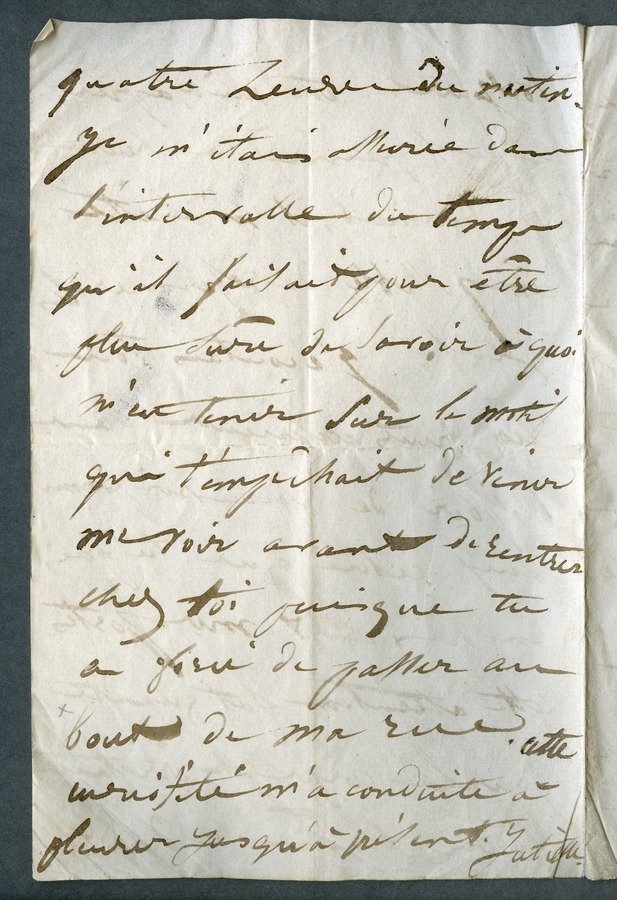 quatre heures du matin.
Je m'étais assurée dans
l'intervalle du temps
qu'il faisait pour être
plus sûre de savoir à quoi
m'en tenir sur le motif
qui t'empêchait de venir
me voir avant de rentrer
chez toi puisque tu
a forcé de passer au
bout de ma rue. cette
curiosité m'a conduite à
pleurer jusqu'à présent.